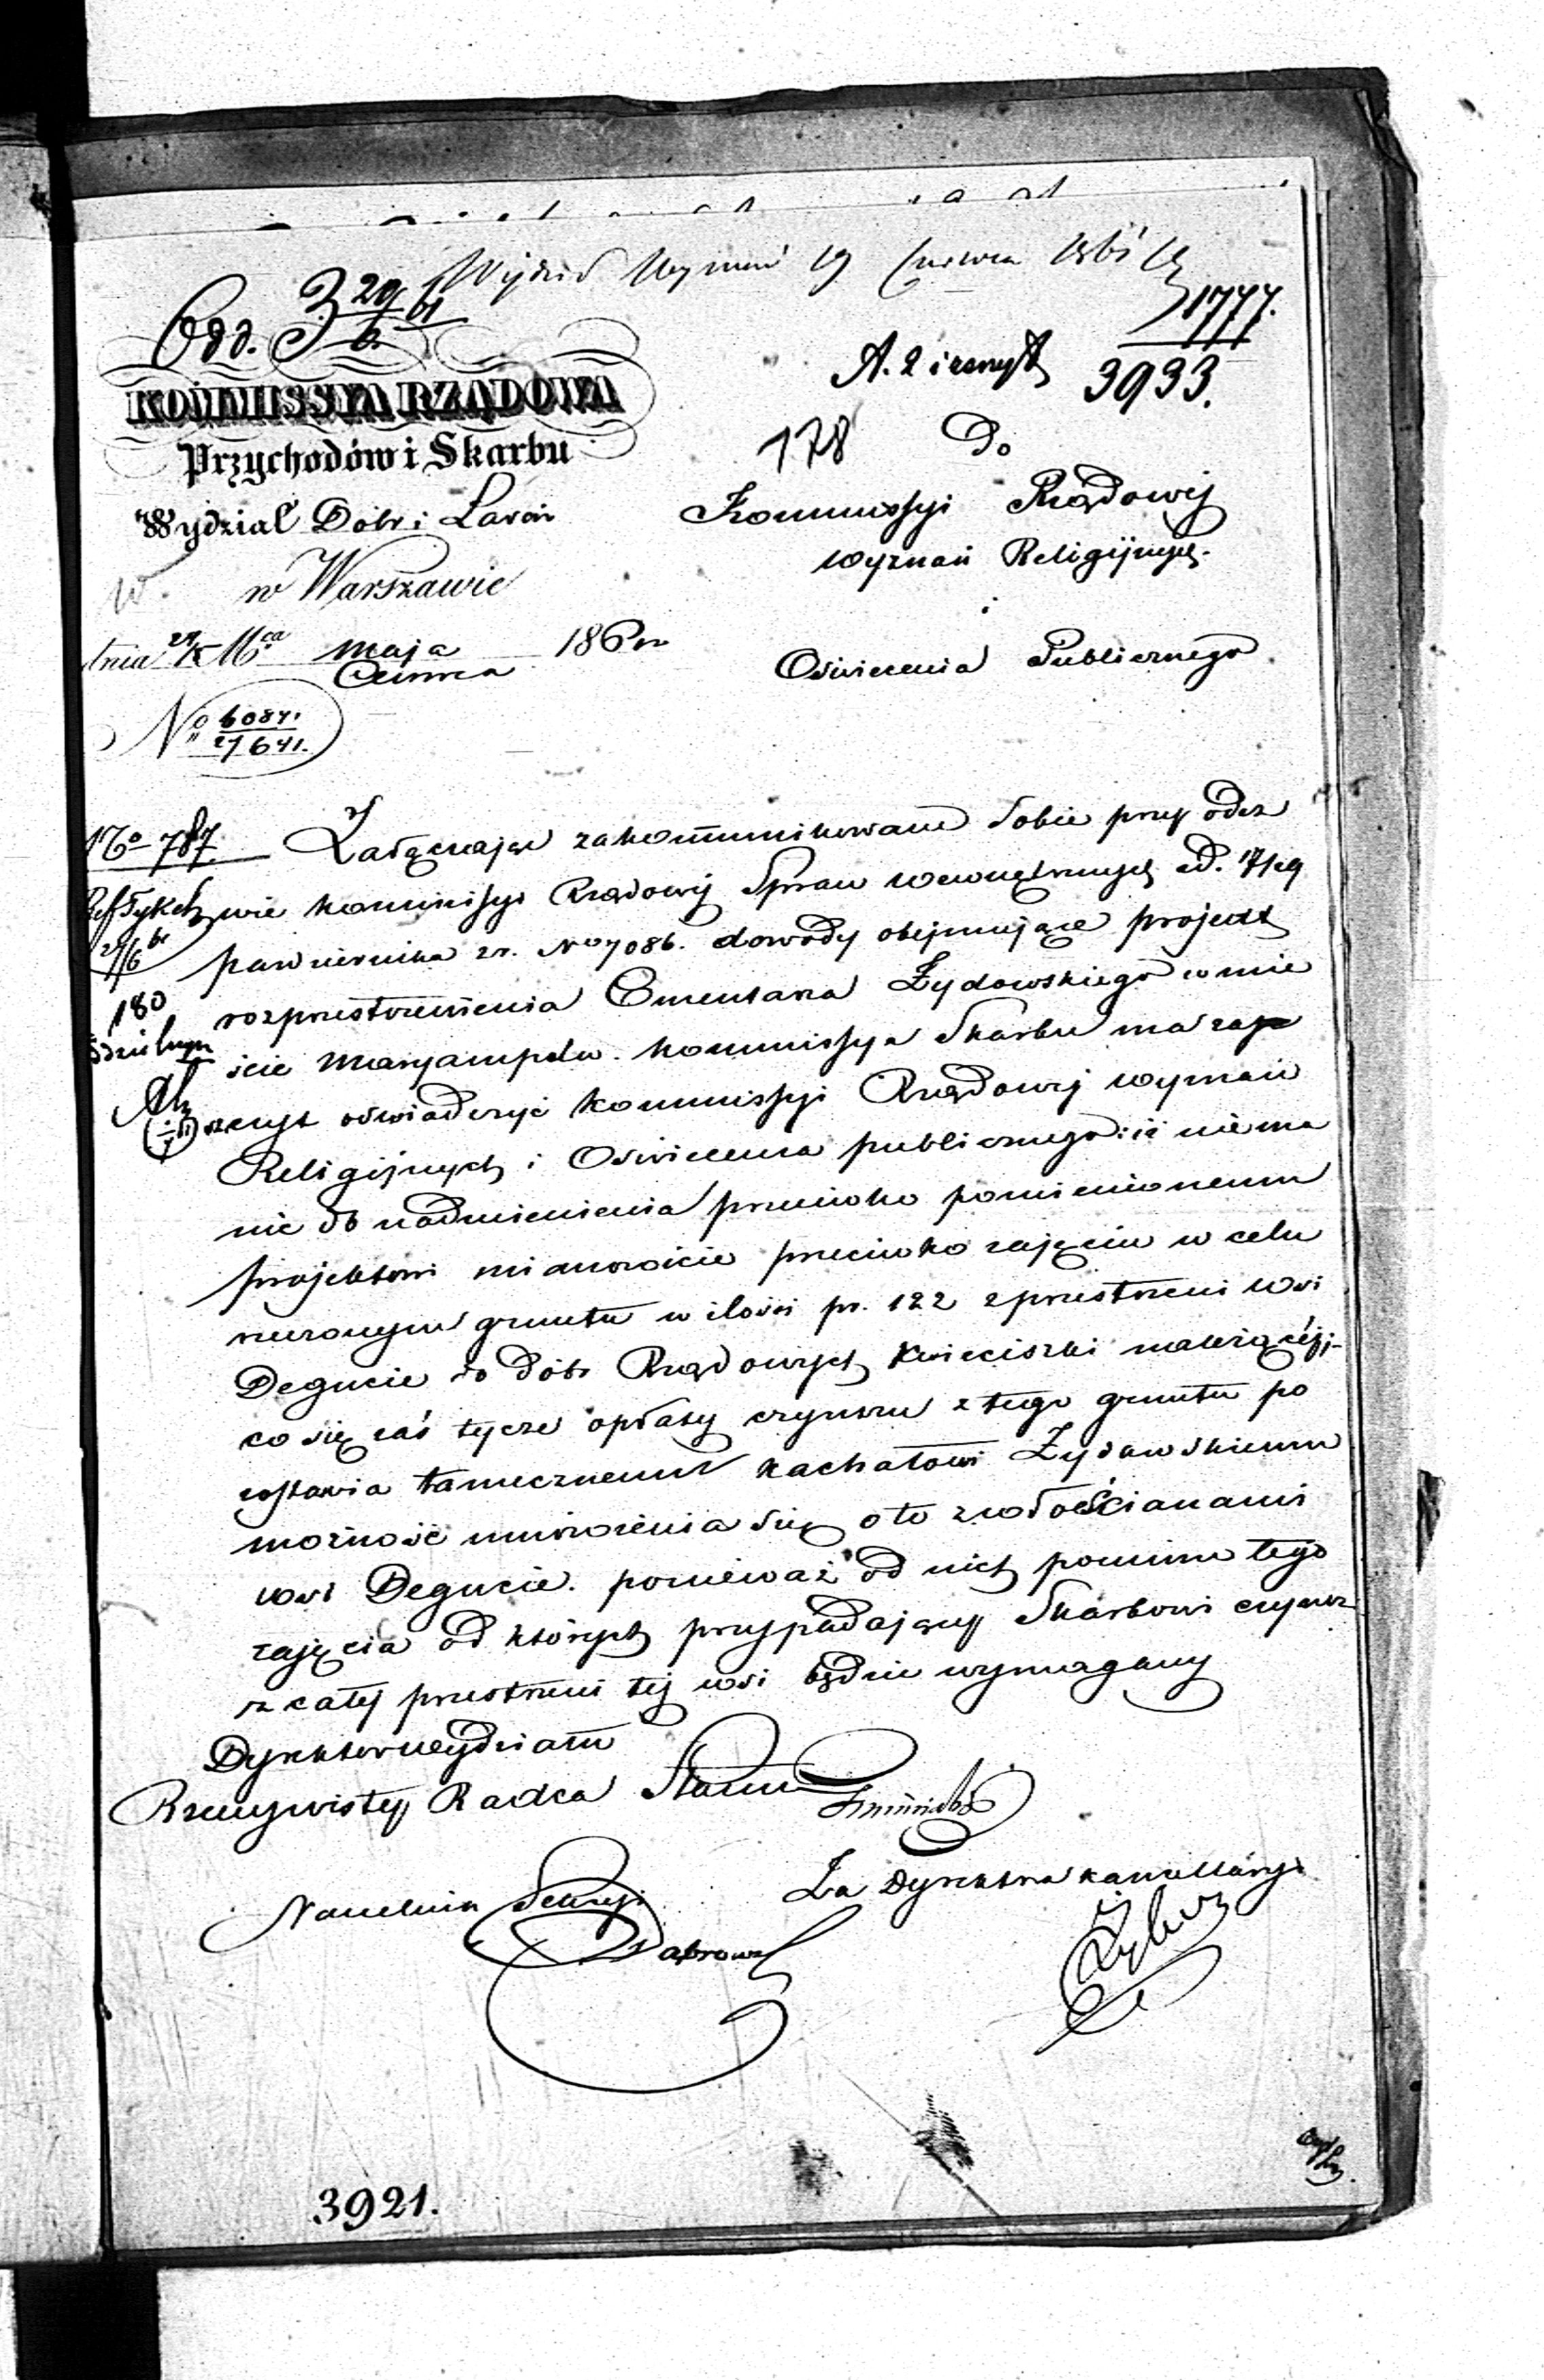 Wydział Wyznań 19 Czerwca 1861
Odd. 3 29/6 61
1777.
A. 2 i zeszyt 3933.
KOMMISSYA RZĄDOWA
Przychodów i Skarbu
178 Do
Wydział Dóbr i Lasów
Kommissyi Rządowej
Wyznań Religijnych
w Warszawie
i
dnia Mca maja 186
Czerwca
Oświecenia Publicznego
No 6084.
27641.
No 787. Załączając zakommunikowane Sobie przy odez
wie Kommissyi Rządowej Spraw Wewnętrznych z d. 17/29
października zr. No 7086. dowody obejmujące projekt
180 rozprzestrzenienia Cmentarza Żydowskiego w mie
ście Maryampolu. Kommissya Skarbu ma za
szczyt oświadczyć Kommissyi Rządowej Wyznań
Religijnych i Oświecenia publicznego: iż nie ma
nic do nadmienienia przeciwko pomienionemu
projektowi mianowicie przeciwko zajęciu w celu
rzeczonym gruntu w ilości pr. 122 z przestrzeni wsi
Degucie do dóbr Rządowych Kwieciszki należącéj;
co się zaś tycze opłaty czynszu z tego gruntu po
zostawia tamecznemu Kachałowi Żydowskiemu
możność umówienia się o to z włościanami
wsi Degucie. ponieważ od nich pomimo tego
zajęcia od których przypadający Skarbowi czynsz
z całéj przestrzeni téj wsi będzie wymagany
Dyrektor Wydziału
Rzeczywisty Radca Stanu
Za Dyrektora Kancellaryi
Naczelnik Sekcyi
Dąbrows
3921.